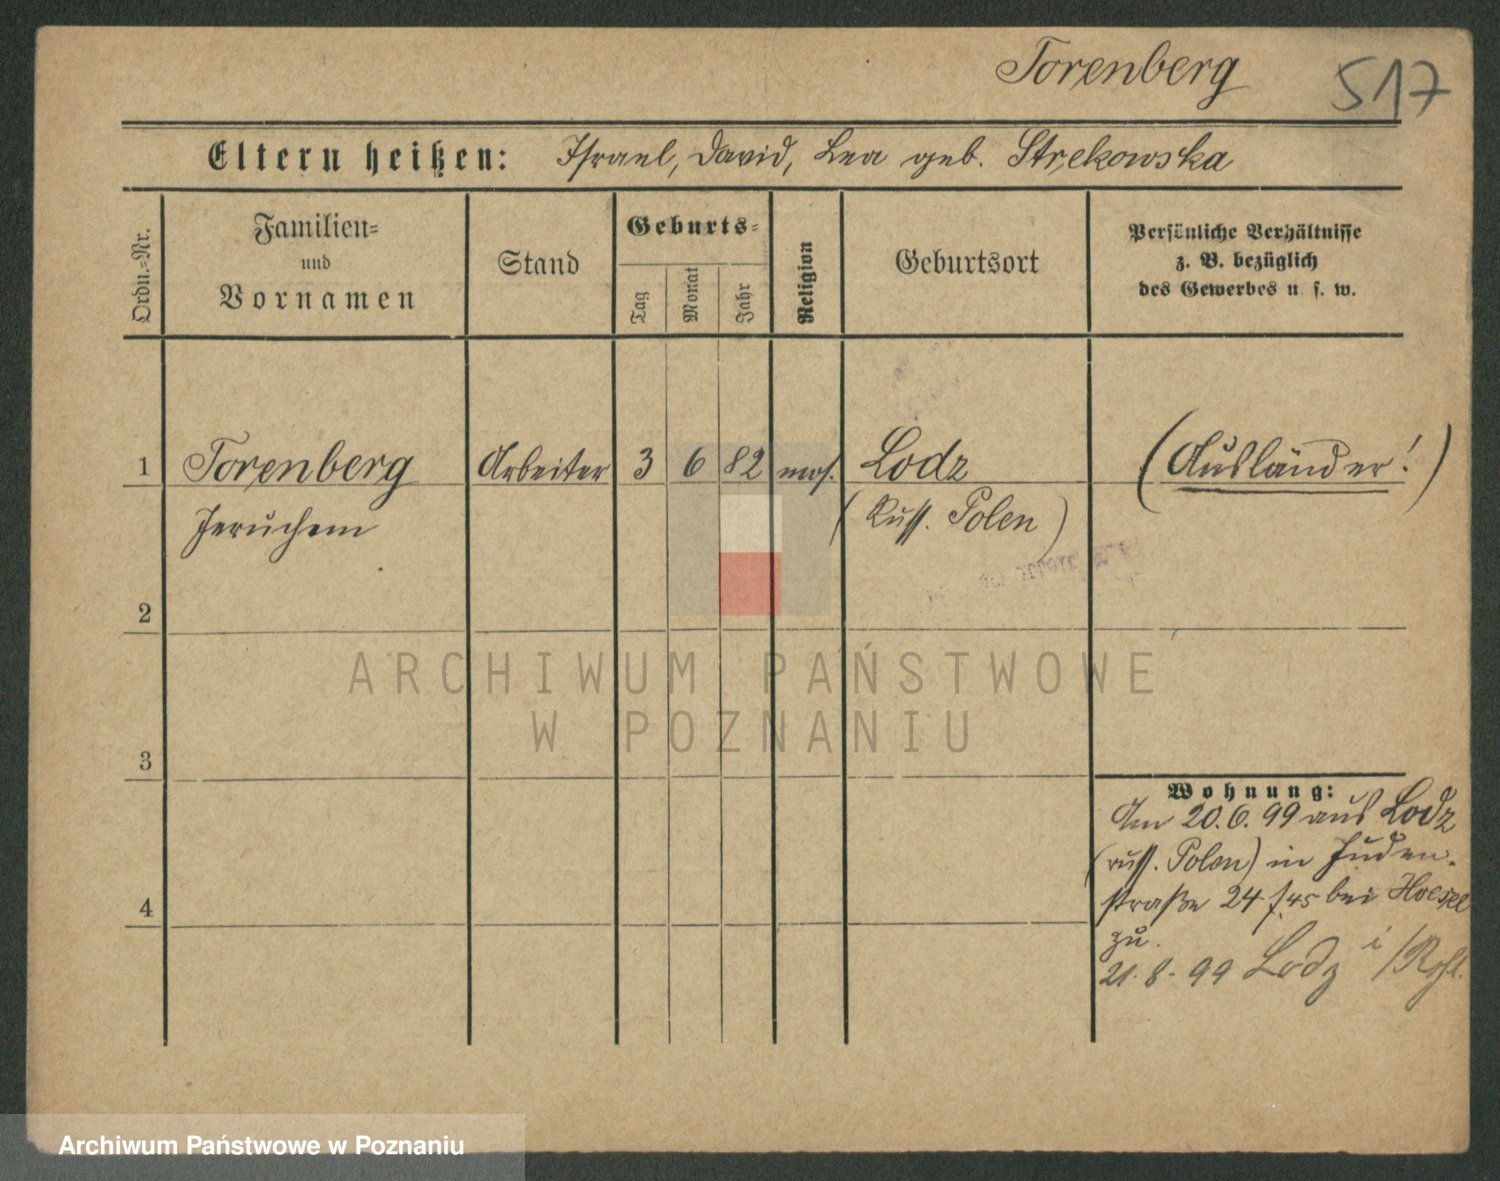 Torenberg
517
Eltern heißen: Israel, David, Lea geb. Strekowska
Ordn.=Nr.
Familien=
und
Vornamen
Stand
Geburts=
Tag
Monat
Jahr
Religion
Geburtsort
Persönliche Verhältnisse
z. B. bezüglich
des Gewerbes u. s. w.
1 Torenberg Arbeiter 3 6 82 mos. Lodz (Ausländer!)
Jeruchem (Russ. Polen)
2
ARCHIWUM PAŃSTWOWE
W POZNANIU
3
Wohnung:
Am 20.6.99 aus Lodz
(russ. Polen) in Juden-
straße 24 bei
zu.
21.8.99 Lodz i/Rßl.
4
Archiwum Państwowe w Poznaniu